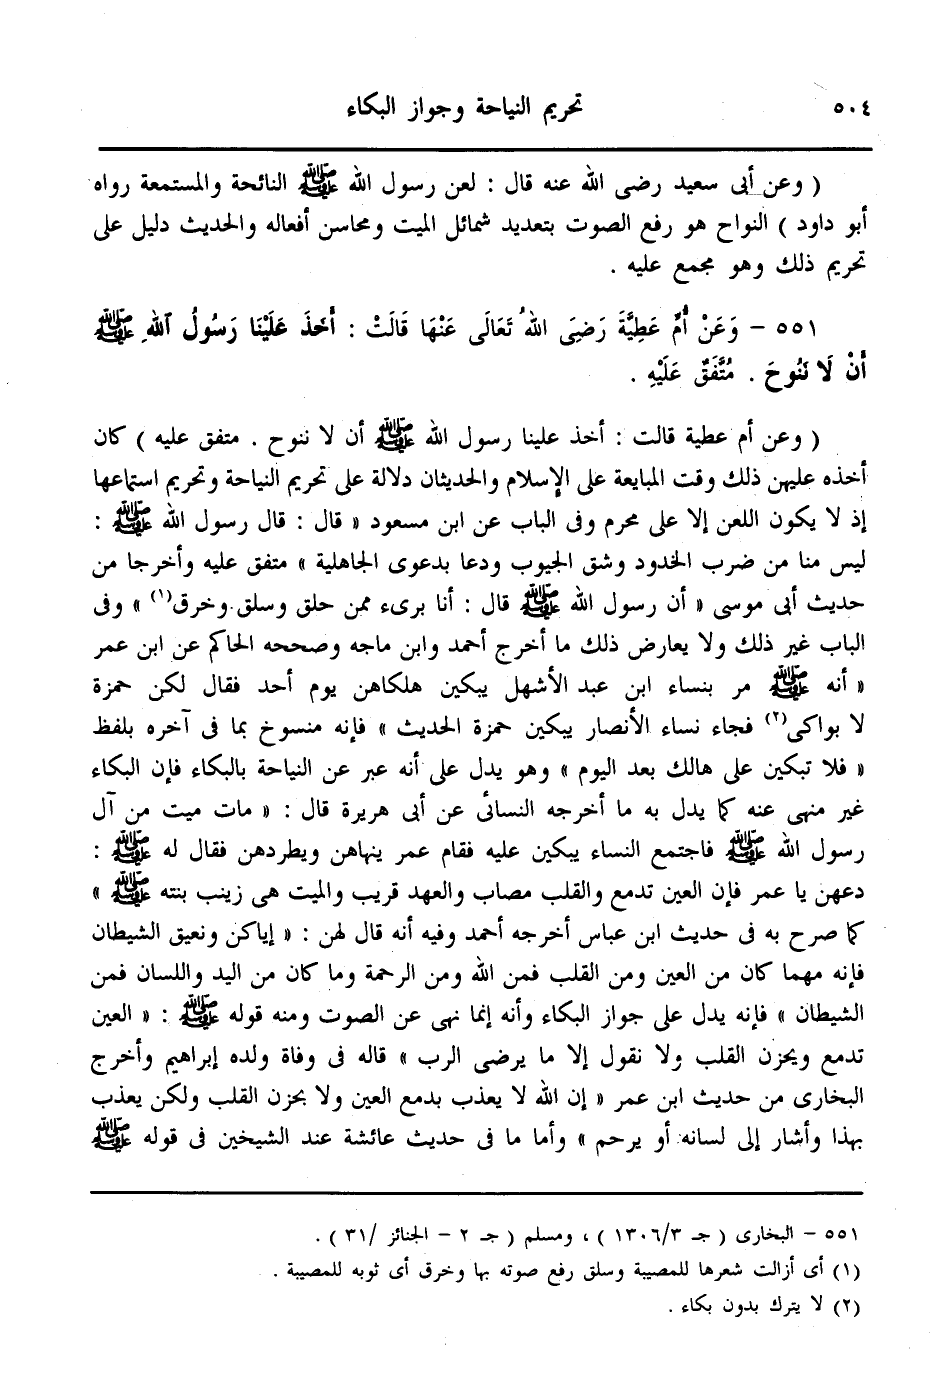 ٥٠٤ تحريم النياحة وجواز البكاء
( وعن أبى سعيد رضى الله عنه قال : لعن رسول الله ﷺ النائحة والمستمعة رواه
أبو داود ) النواح هو رفع الصوت بتعديد شمائل الميت ومحاسن أفعاله والحديث دليل على
تحريم ذلك وهو مجمع عليه .
٥٥١ – وَعَنْ أُمِّ عَطِيَّةَ رَضِىَ اللهُ تَعَالَى عَنْهَا قَالَتْ : أَخَذَ عَلَيْنَا رَسُولُ اللهِ ﷺ
أَنْ لَا نَنُوحَ . مُتَّفَقٌ عَلَيْهِ .
( وعن أم عطية قالت : أخذ علينا رسول الله ﷺ أن لا ننوح . متفق عليه ) كان
أخذه عليهن ذلك وقت المبايعة على الإسلام والحديثان دلالة على تحريم النياحة وتحريم استماعها
إذ لا يكون اللعن إلا على محرم وفى الباب عن ابن مسعود « قال : قال رسول الله ﷺ :
ليس منا من ضرب الخدود وشق الجيوب ودعا بدعوى الجاهلية » متفق عليه وأخرجا من
حديث أبى موسى « أن رسول الله ﷺ قال : أنا برىء ممن حلق وسلق وخرق(١) » وفى
الباب غير ذلك ولا يعارض ذلك ما أخرج أحمد وابن ماجه وصححه الحاكم عن ابن عمر
« أنه ﷺ مر بنساء ابن عبد الأشهل يبكين هلكاهن يوم أحد فقال لكن حمزة
لا بواكى(٢) فجاء نساء الأنصار يبكين حمزة الحديث » فإنه منسوخ بما فى آخره بلفظ
« فلا تبكين على هالك بعد اليوم » وهو يدل على أنه عبر عن النياحة بالبكاء فإن البكاء
غير منهى عنه كما يدل به ما أخرجه النسائى عن أبى هريرة قال : « مات ميت من آل
رسول الله ﷺ فاجتمع النساء يبكين عليه فقام عمر ينهاهن ويطردهن فقال له ﷺ :
دعهن يا عمر فإن العين تدمع والقلب مصاب والعهد قريب والميت هى زينب بنته ﷺ »
كما صرح به فى حديث ابن عباس أخرجه أحمد وفيه أنه قال لهن : « إياكن ونعيق الشيطان
فإنه مهما كان من العين ومن القلب فمن الله ومن الرحمة وما كان من اليد واللسان فمن
الشيطان » فإنه يدل على جواز البكاء وأنه إنما نهى عن الصوت ومنه قوله ﷺ : « العين
تدمع ويحزن القلب ولا نقول إلا ما يرضى الرب » قاله فى وفاة ولده إبراهيم وأخرج
البخارى من حديث ابن عمر « إن الله لا يعذب بدمع العين ولا بحزن القلب ولكن يعذب
بهذا وأشار إلى لسانه أو يرحم » وأما ما فى حديث عائشة عند الشيخين فى قوله ﷺ
٥٥١ – البخارى ( جـ ١٣٠٦/٣ ) ، ومسلم ( جـ ٢ – الجنائز /٣١ ) .
(١) أى أزالت شعرها للمصيبة وسلق رفع صوته بها وخرق أى ثوبه للمصيبة .
(٢) لا يترك بدون بكاء .